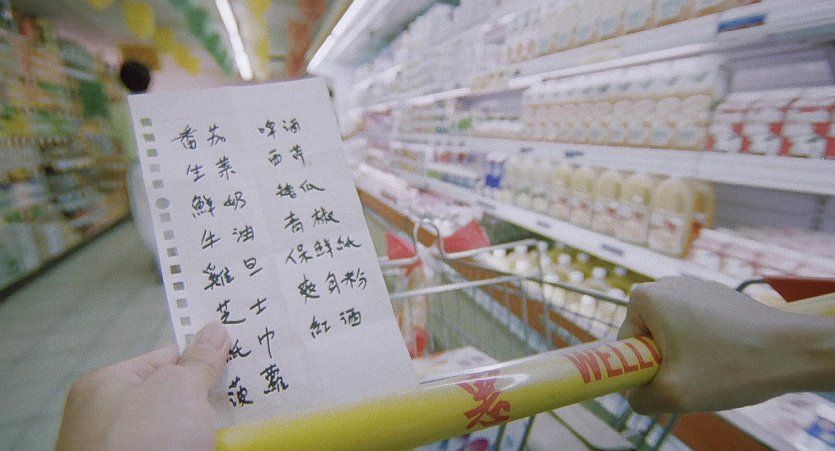 番茄
生菜
鮮奶
牛油
雞旦
芝士
紙巾
菠蘿
啤酒
西芹
青椒
保鮮紙
爽身粉
紅酒
惠 WELLC